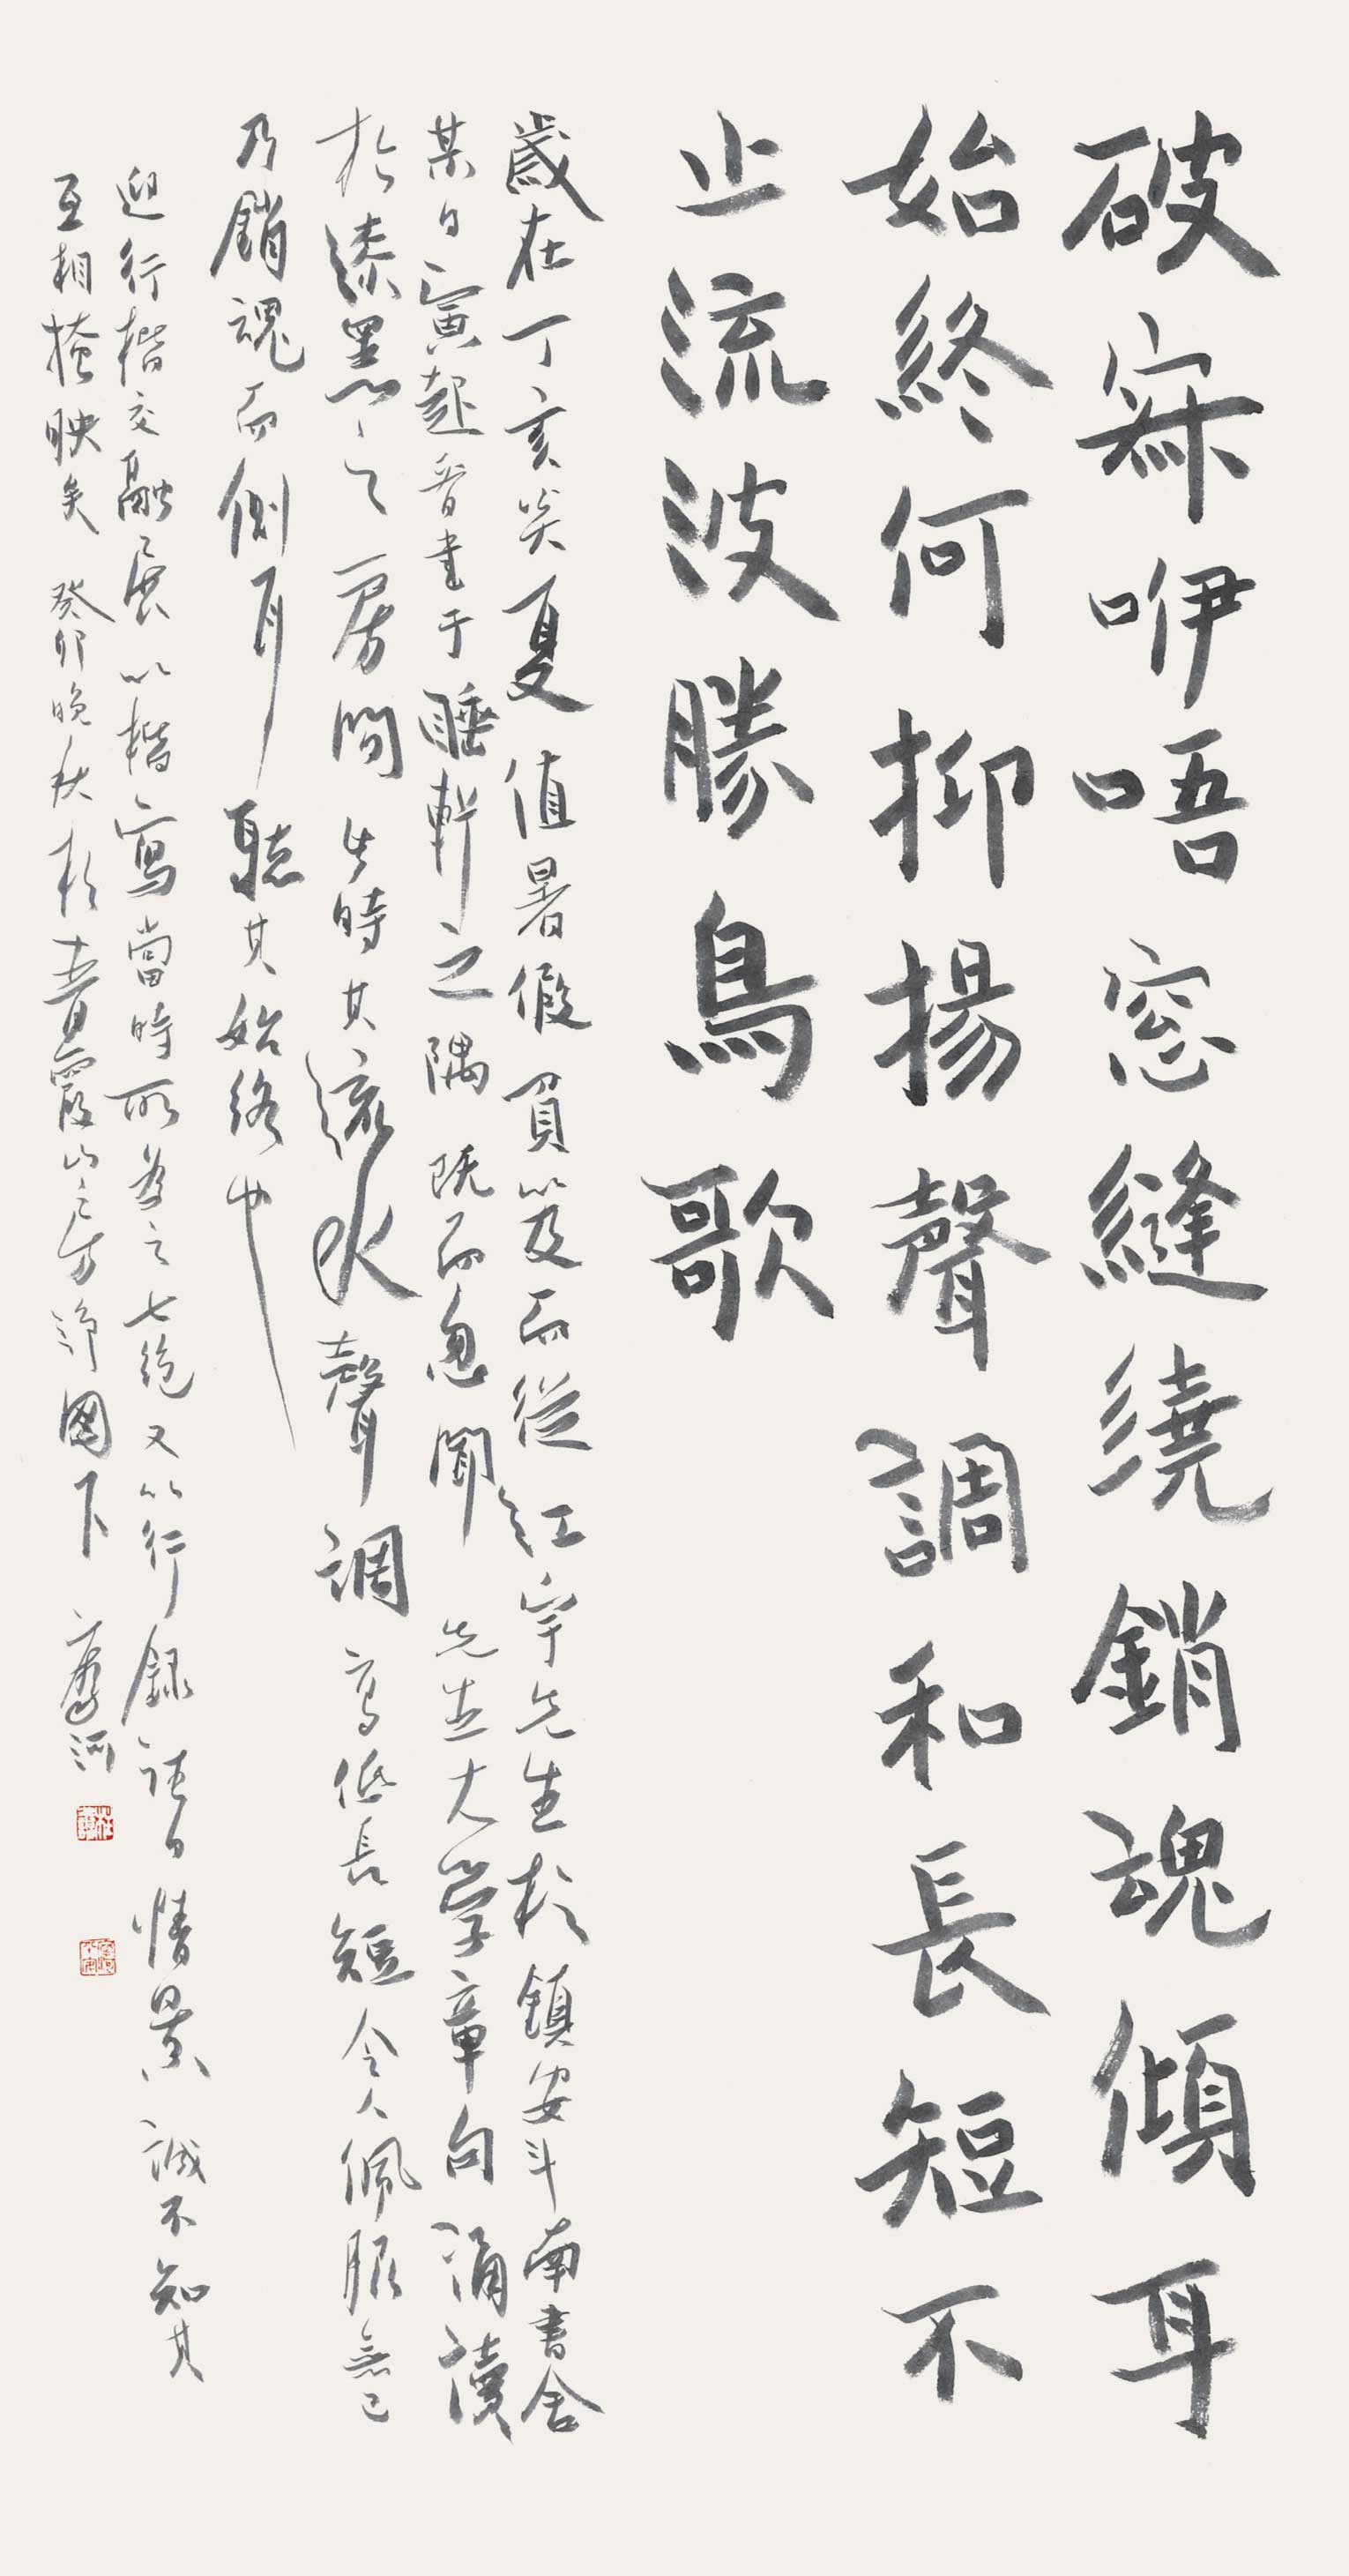 破寐咿唔窓縫繞銷魂傾耳
始終何抑揚聲調和長短不
止流波勝鳥歌
歲在丁亥炎夏值暑假負笈而從江宇先生於鎮安斗南書舍
某日寅起晉書于睡軒之隅既而忽聞先生大學章句涌讀
於漆黑之房間失時其流水聲調高低長短令人佩服無已
乃銷魂而側耳聽其始終也
迎行楷交融展以楷寫當時所為之七絕又以行錄記日情景誠不知其
互相掩映矣癸卯晚秋於青霞山房 國下 河